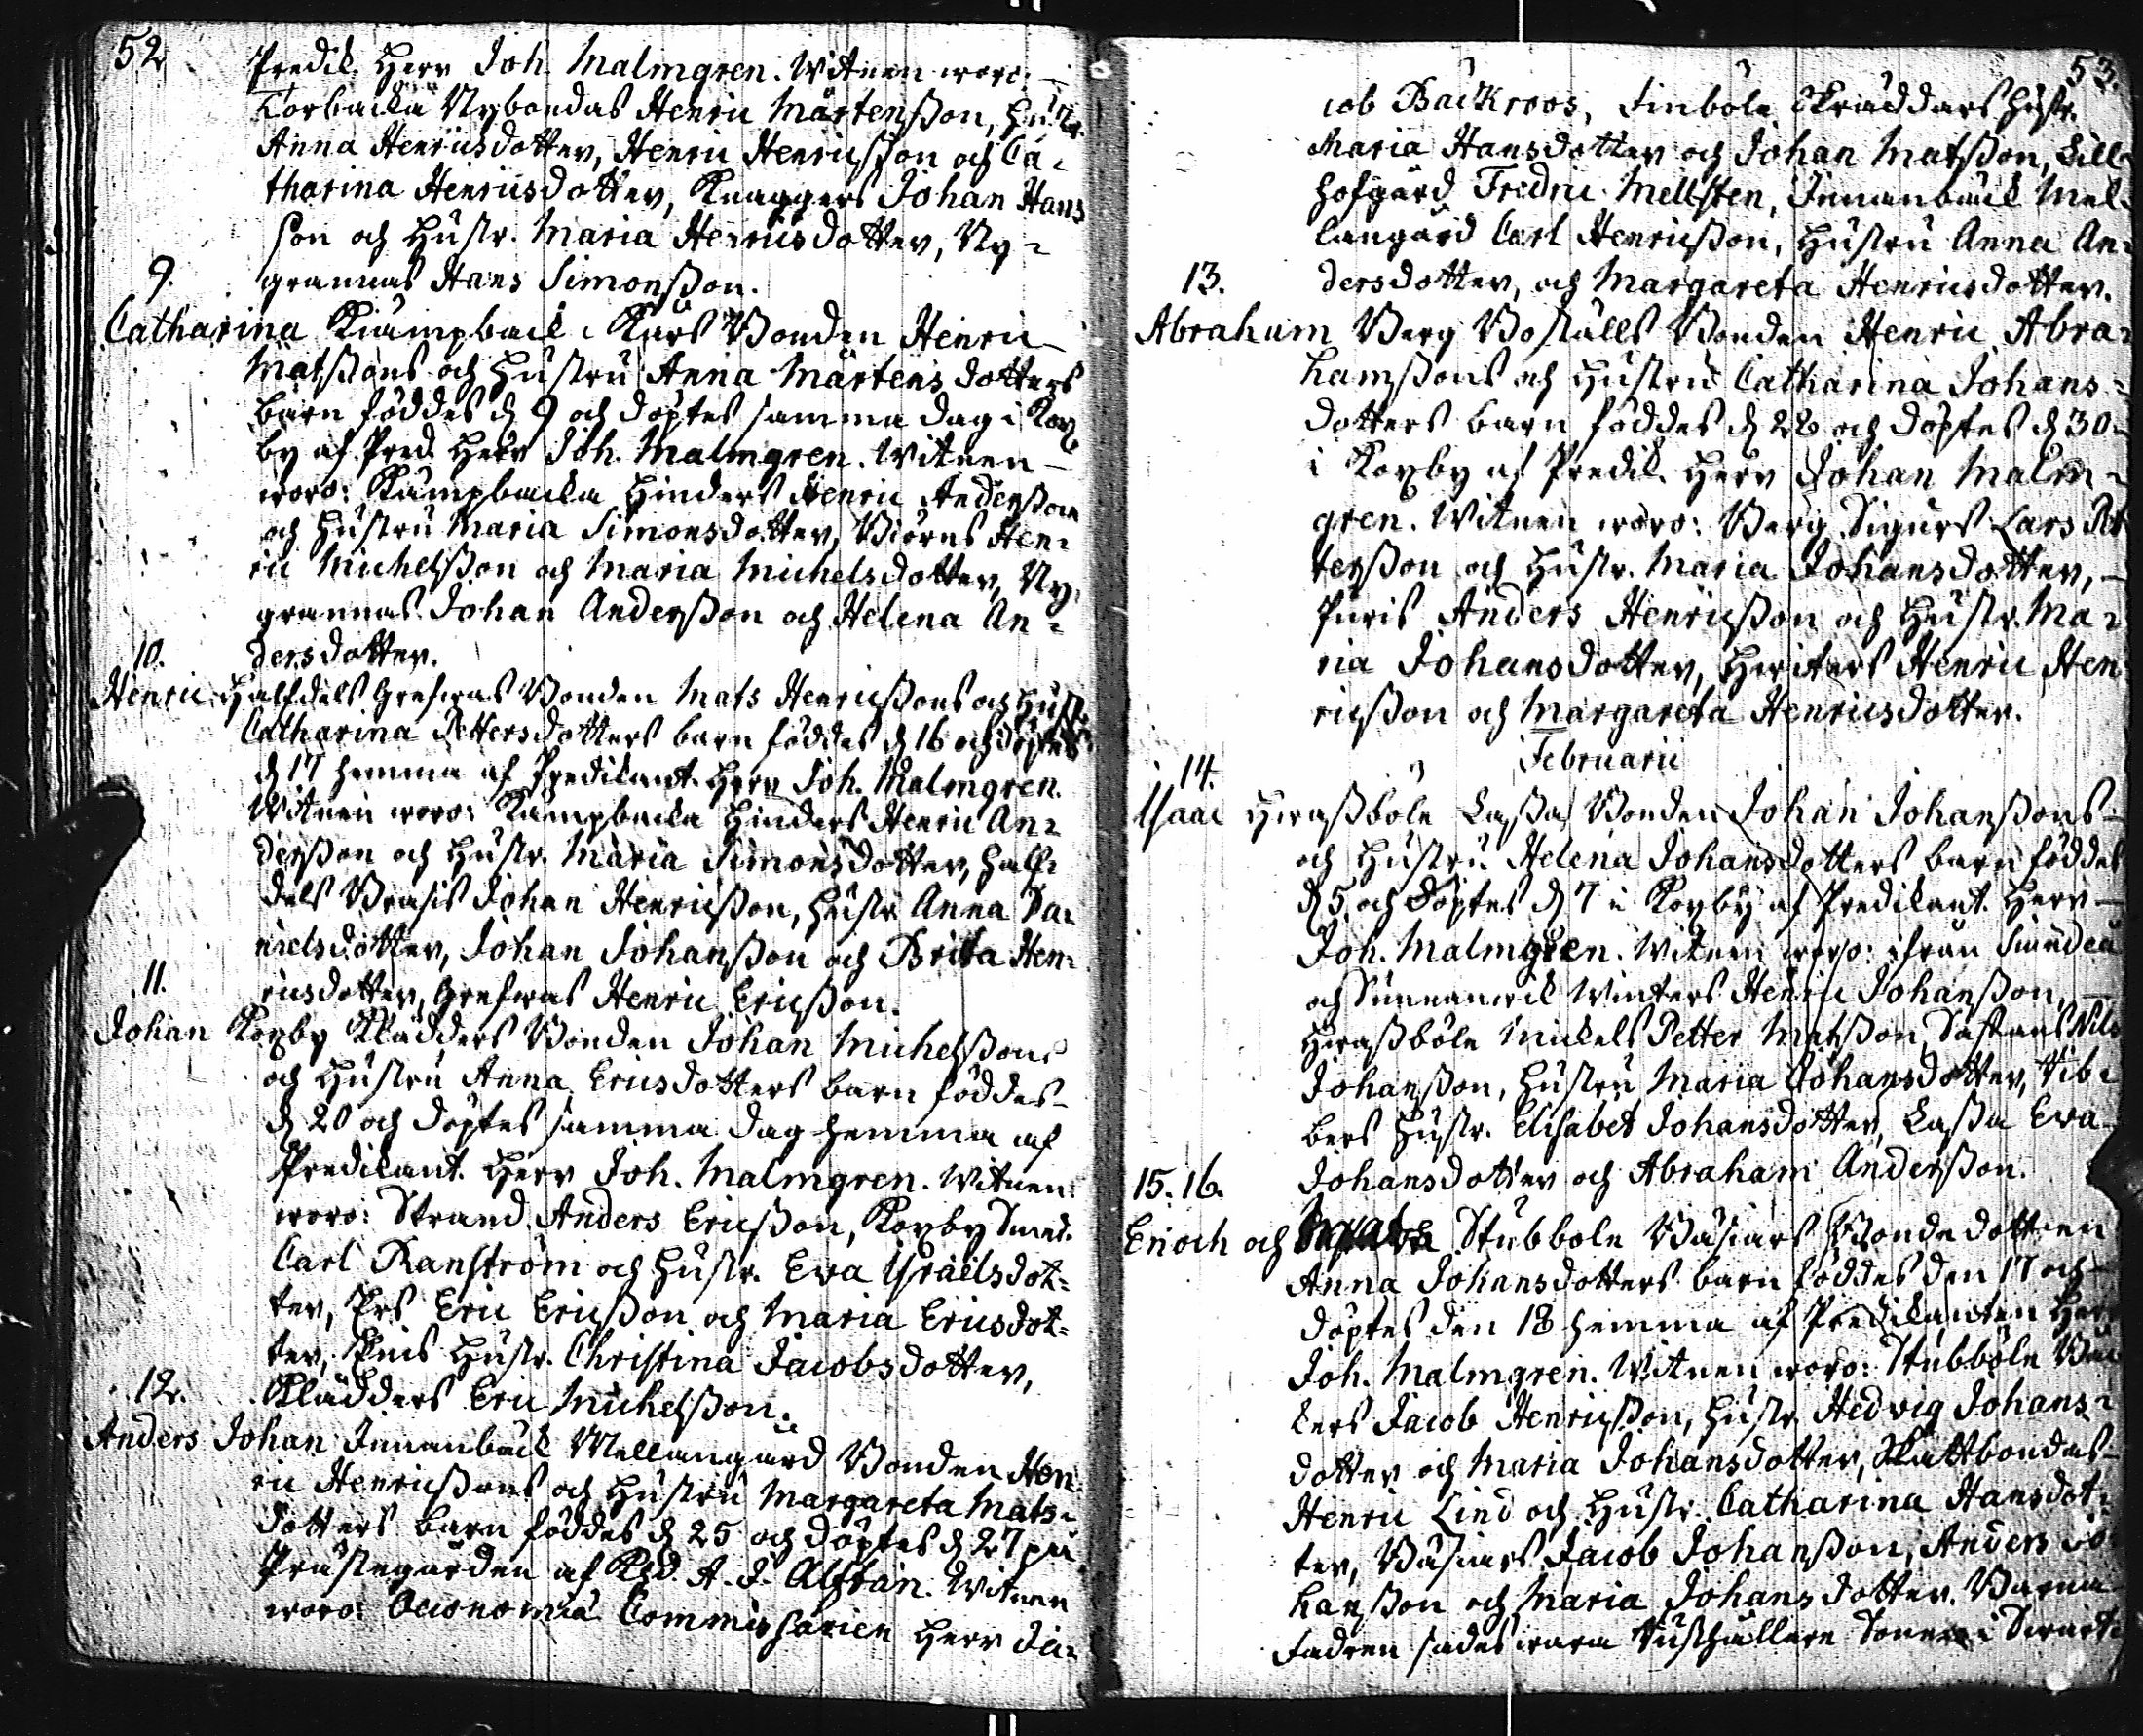 52
Predik. Herr Joh. Malmgren. Witnen woro:
Torbacka Nybondas Henric Mårtensson, Hustr.
Anna Henricsdotter, Henric Henricsson och Ca-
tharina Henricsdotter, Knaggers Johan Hans
son och Hustr. Maria Henricsdotter, Ny-
9. grannas Hans Simonsson.
Catharina Kiämpback Kårs Bonden Henric
Matssons och Hustru Anna Mårtensdotters
barn föddes d 9 och döptes samma dag i Kor
by af Pred. Herr Joh. Malmgren. Witnen
woro: Kämpbacka Hinders Henric Andersson
och Hustru Maria Simonsdotter, Biörns Hen-
ric Michelsson och Maria Michelsdotter, Ny-
grannas Johan Andersson och Helena An-
10. dersdotter.
Henric Halfdels Grefwas Bonden Mats Henricssons och Hust.
Catharina Pettersdotters barn föddes d 16 och döptes
d 17 hemma af Predikant. Herr Joh. Malmgren.
Witnen woro: Kämpbacka Hinders Henric An-
dersson och Hustr. Maria Simonsdotter, Half-
dels Brasis Johan Henricsson, Hustr Anna Da-
nielsdotter, Johan Johansson och Brita Hen-
11. ricsdotter, Grefwas Henric Ericsson.
Johan Korby Klädders Bonden Johan Michelssons
och Hustru Anna Ericsdotters barn föddes
d 20 och döptes samma dag hemma af
Predikant. Herr Joh. Malmgren. Witnen
woro: Strand Anders Ericsson, Korby Smed.
Carl Ranström och Hustr. Ewa Israelsdot-
ter, Pers Eric Ericsson och Maria Ericsdot-
ter, Hustr. Christina Jacobsdotter,
12. Klädders Eric Michelsson.
Anders Johan Innanbäck Mellangård Bonden Hen
ric Henricssons och Hustru Margareta Mats-
dotters barn föddes d 25 och döptes d 27 på
Prästegården af A. J. Alftan. Witnen
woro: Oeconomiæ Commissarien Herr Ja-
53.
cob Backroos, Finböle Skräddars Hustr.
Maria Hansdotter och Johan Matsson, Lill
hofgård Fredric Mellsten, Innanbäck Mel-
langård Carl Henricsson, Hustru Anna An-
13. dersdotter, och Margareta Henricsdotter.
Abraham Berg Boställs Bonden Henric Abra-
hamssons och Hustru Catharina Johans-
dotters barn föddes d 28 och döptes d 30
i Korby af Predik. Herr Johan Malm-
gren. Witnen woro: Berg Sigurs Lars Pet
tersson och Hustr. Maria Johansdotter,
Puris Anders Henricsson och Hustr. Ma-
ria Johansdotter, Henric Hen
ricsson och Margareta Henricsdotter.
Februarii
14.
Isaac Herassböle Lassas Bonden Johan Johanssons
och Hustru Helena Johansdotters barn föddes
d 5 och döptes d 7 i Korby af Predikant. Herr
Joh. Malmgren. Witnen woro: ifrån
och Sunnanwik Winters Henric Johansson,
Herassböle Mickels Petter Matsson, Nils
Johansson, Hustru Maria Johansdotter, Tib-
bers Hustr. Elisabet Johansdotter, Lassa Ewa
15. 16. Johansdotter och Abraham Andersson.
Enoch och Stubbole Wäsiärs Bondedottren
Anna Johansdotters barn föddes den 17 och
döptes den 18 hemma af Predikanten Herr
Joh. Malmgren. Witnen woro: Stubböle Bäc
kers Jacob Henricsson, Hustr Hedvig Johans-
dotter och Maria Johansdotter, Skattbondas
Henric Lind och Hustr. Catharina Hansdot-
ter, Wäsiärs Jacob Johansson, Anders Jo-
hansson och Maria Johansdotter. Barna
Fadren sades wara Rusthållare Sonen i Swart-